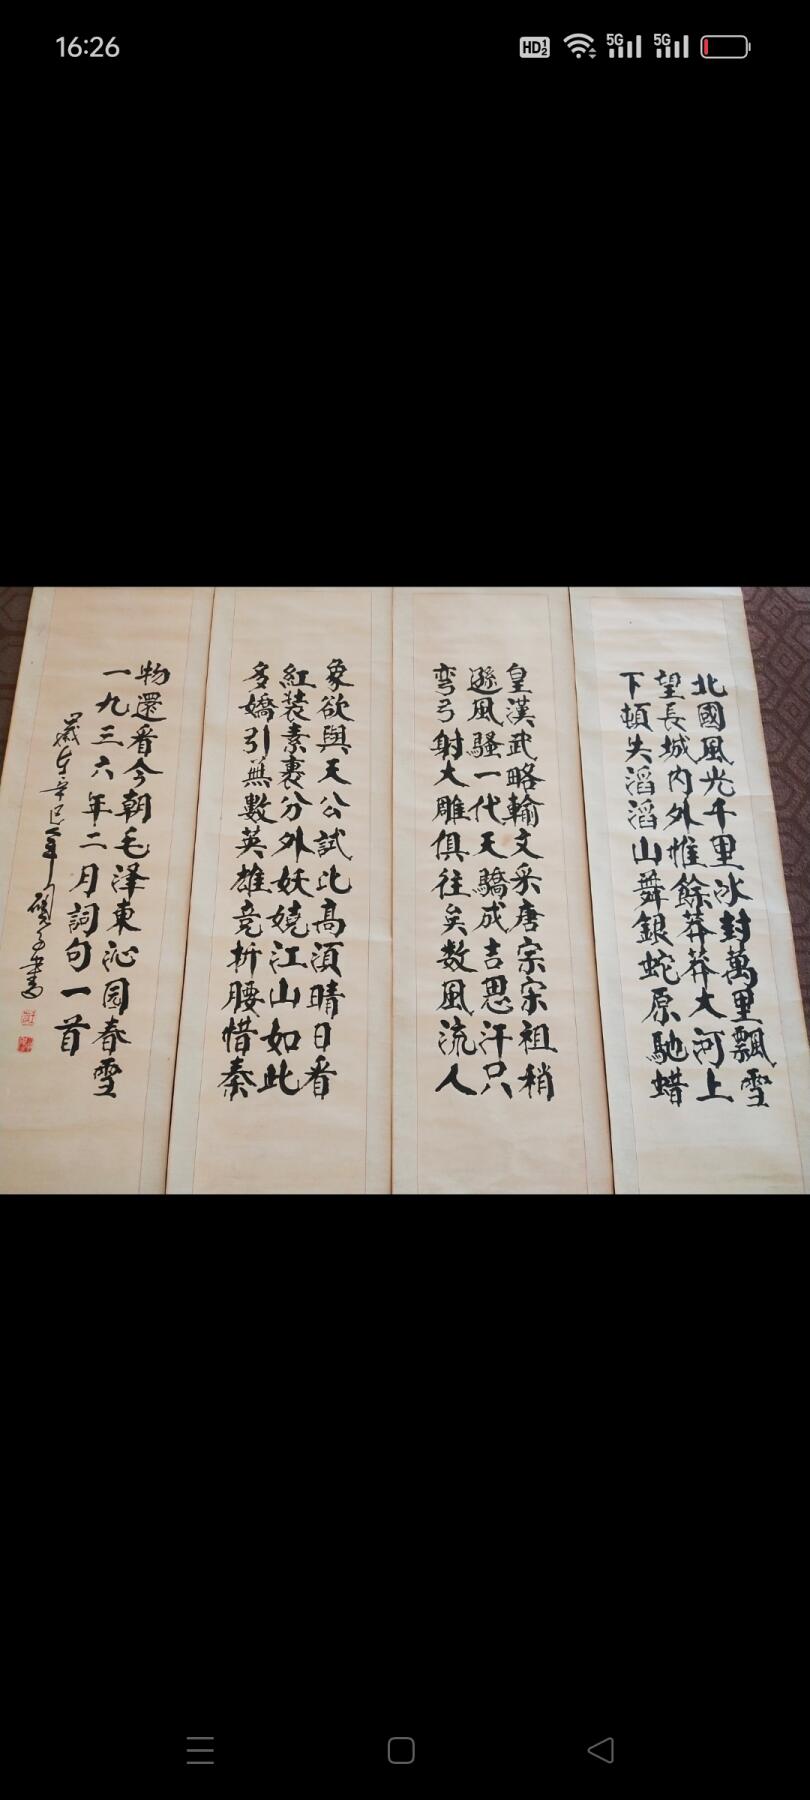 16:26
HD 1 2
5G
5G
北國風光千里冰封萬里飄雪
望長城内外惟餘莽莽大河上
下頓失滔滔山舞銀蛇原馳蜡
皇漢武略輸文采唐宗宋祖稍
遜風騷一代天驕成吉思汗只
弯弓射大雕俱往矣数風流人
象欲與天公試比高須晴日看
紅装素裹分外妖嬈江山如此
多嬌引無數英雄竞折腰惜秦
物還看今朝毛泽東沁园春雪
一九三六年二月詞句一首
歲在辛巳年書